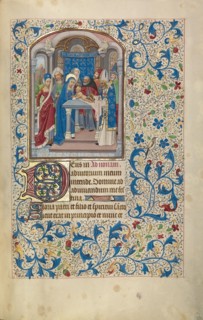 Deus in Ad nonam.
adiutorium meum
intende. Domine ad
adiuvandum me fes
tina.
Gloria patri et filio et spiritui
erat in principio et nunc et